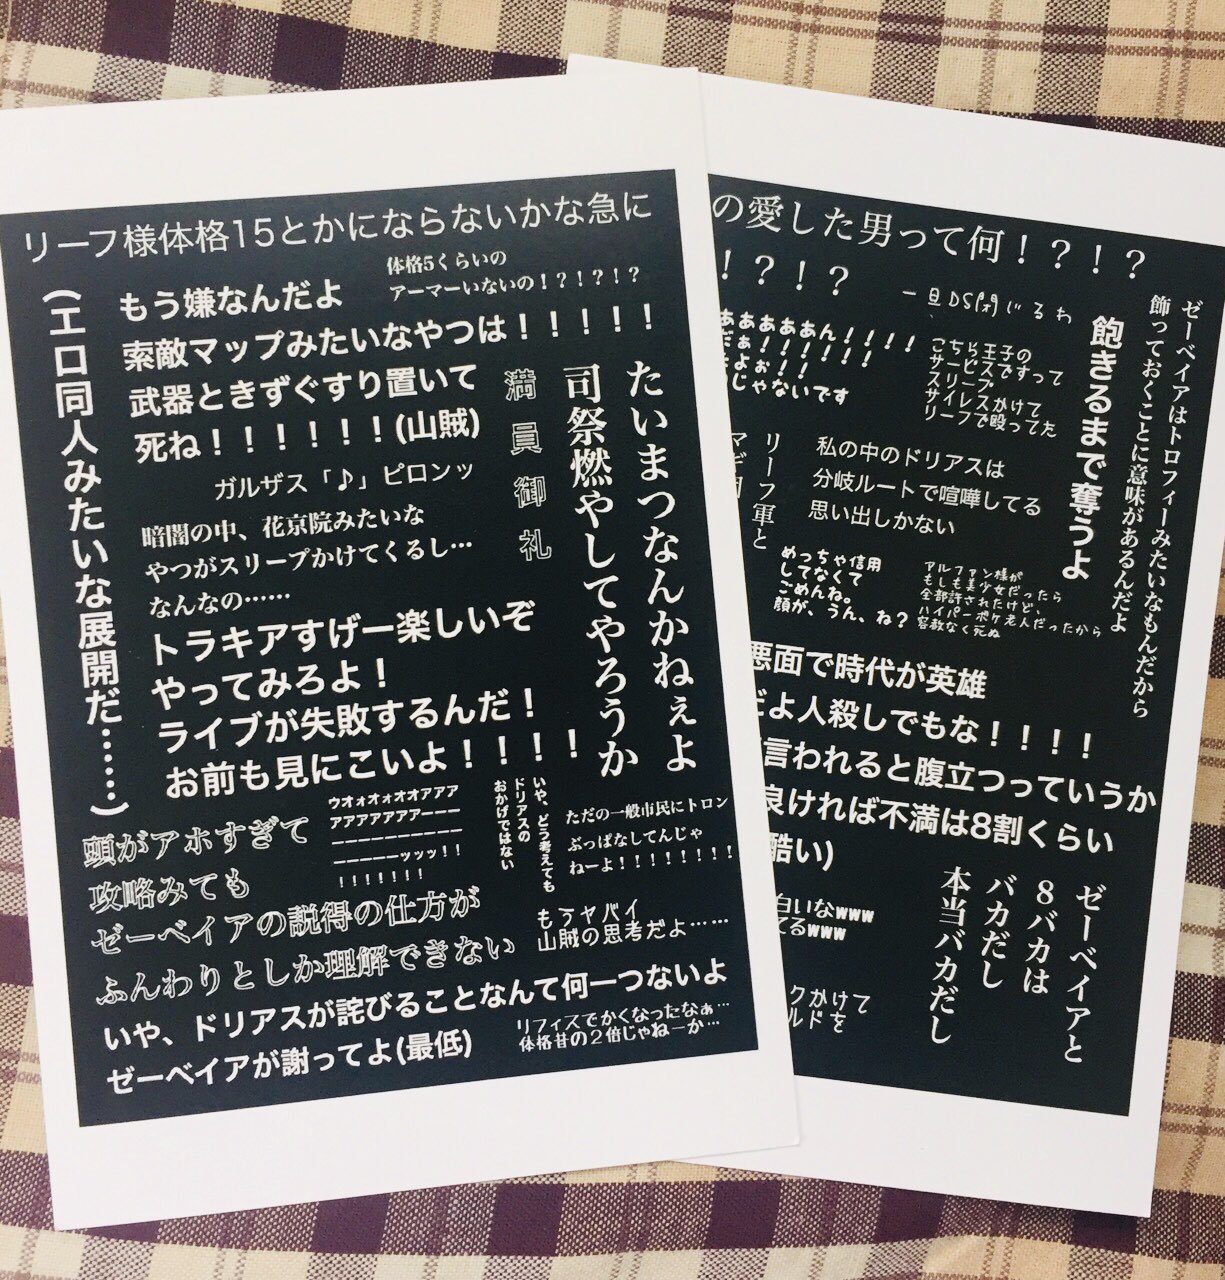 リーフ様体格15とかにならないかな急に
体格5くらいの
アーマーいないの！？！？！？
もう嫌なんだよ
索敵マップみたいなやつは！！！！！
武器ときずぐすり置いて
死ね！！！！！！(山賊)
(エロ同人みたいな展開だ……)
満員御礼
たいまつなんかねぇよ
司祭燃やしてやろうか
ガルザス「♪」ピロンッ
暗闇の中、花京院みたいな
やつがスリープかけてくるし…
なんなの……
トラキアすげー楽しいぞ
やってみろよ！
ライブが失敗するんだ！
お前も見にこいよ！！！！
ウオォォオオアアア
アアアアアアアーーー
ーーーーーーーーーー
ーーーーーッッッ！！
！！！！！！！
いや、どう考えても
ドリアスの
おかげではない
ただの一般市民にトロン
ぶっぱなしてんじゃ
ねーよ！！！！！！！！
頭がアホすぎて
攻略みても
ゼーベイアの説得の仕方が
ふんわりとしか理解できない
もうヤバイ
山賊の思考だよ……
いや、ドリアスが詫びることなんて何一つないよ
ゼーベイアが謝ってよ(最低)
リフィスでかくなったなぁ…
体格昔の２倍じゃねーか…
の愛した男って何！？！？
！？！？
一旦DS閉じるわ
ゼーベイアはトロフィーみたいなもんだから
飾っておくことに意味があるんだよ
飽きるまで奪うよ
ああああん！！！！
だぁ！！！！！！
よぉ！！
じゃないです
こちら王子の
サービスですって
スリープ
サイレスかけて
リーフで殴ってた
リーフ軍と
私の中のドリアスは
分岐ルートで喧嘩してる
思い出しかない
めっちゃ信用
してなくて
ごめんね。
顔が、うん、ね？
アルファン様が
もしも美少女だったら
全部許されたけど、
ハイパーボケ老人だったから
容赦なく死ぬ
悪面で時代が英雄
だよ人殺しでもな！！！！
言われると腹立つっていうか
良ければ不満は8割くらい
酷い)
白いなwww
てるwww
クかけて
ルドを
ゼーベイアと
８バカは
バカだし
本当バカだし